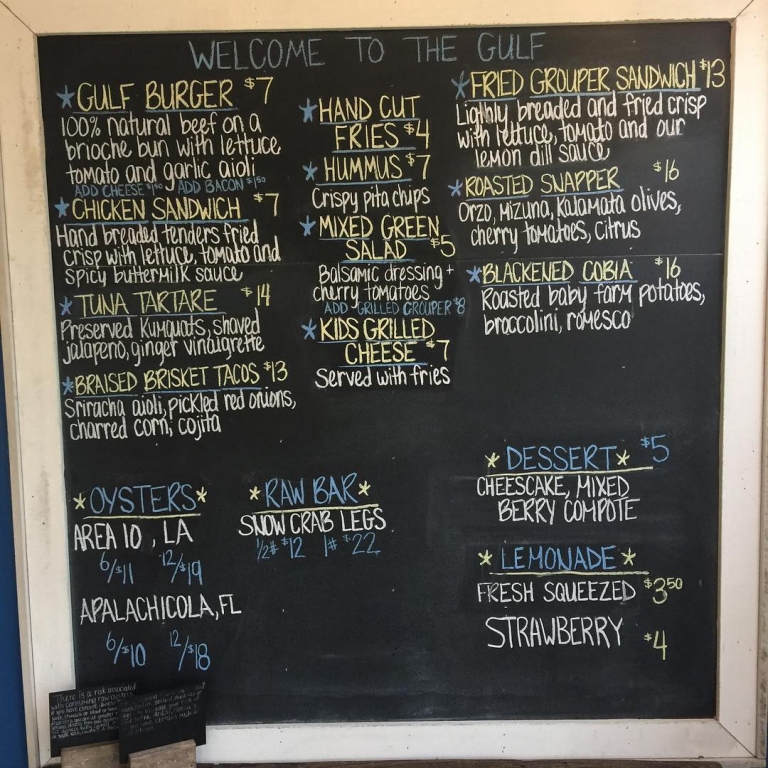 WELCOME TO THE GULF
GULF BURGER $7
100% natural beef on a
brioche bun with lettuce
tomato and garlic aioli
ADD CHEESE $1.50 ADD BACON $1.50
CHICKEN SANDWICH $7
Hand breaded tenders fried
crisp with lettuce, tomato and
spicy buttermilk sauce
TUNA TARTARE $14
Preserved Kumquats, shaved
jalapeno, ginger vinaigrette
BRAISED BRISKET TACOS $13
Sriracha aioli, pickled red onions,
charred corn, cojita
HAND CUT
FRIES $4
HUMMUS $7
Crispy pita chips
MIXED GREEN
SALAD $5
Balsamic dressing +
cherry tomatoes
ADD GRILLED GROUPER $8
KIDS GRILLED
CHEESE $7
Served with fries
FRIED GROUPER SANDWICH $13
Lightly breaded and fried crisp
with lettuce, tomato and our
lemon dill sauce
ROASTED SNAPPER $16
Orzo, Mizuna, Kalamata olives,
cherry tomatoes, citrus
BLACKENED COBIA $16
Roasted baby farm potatoes,
broccolini, romesco
OYSTERS
AREA 10, LA
6/$11 12/$19
APALACHICOLA, FL
6/$10 12/$18
RAW BAR
SNOW CRAB LEGS
1/2# $12 1# $22
DESSERT $5
CHEESCAKE, MIXED
BERRY COMPOTE
LEMONADE
FRESH SQUEEZED $3.50
STRAWBERRY $4
There is a risk associated
with consuming raw oysters